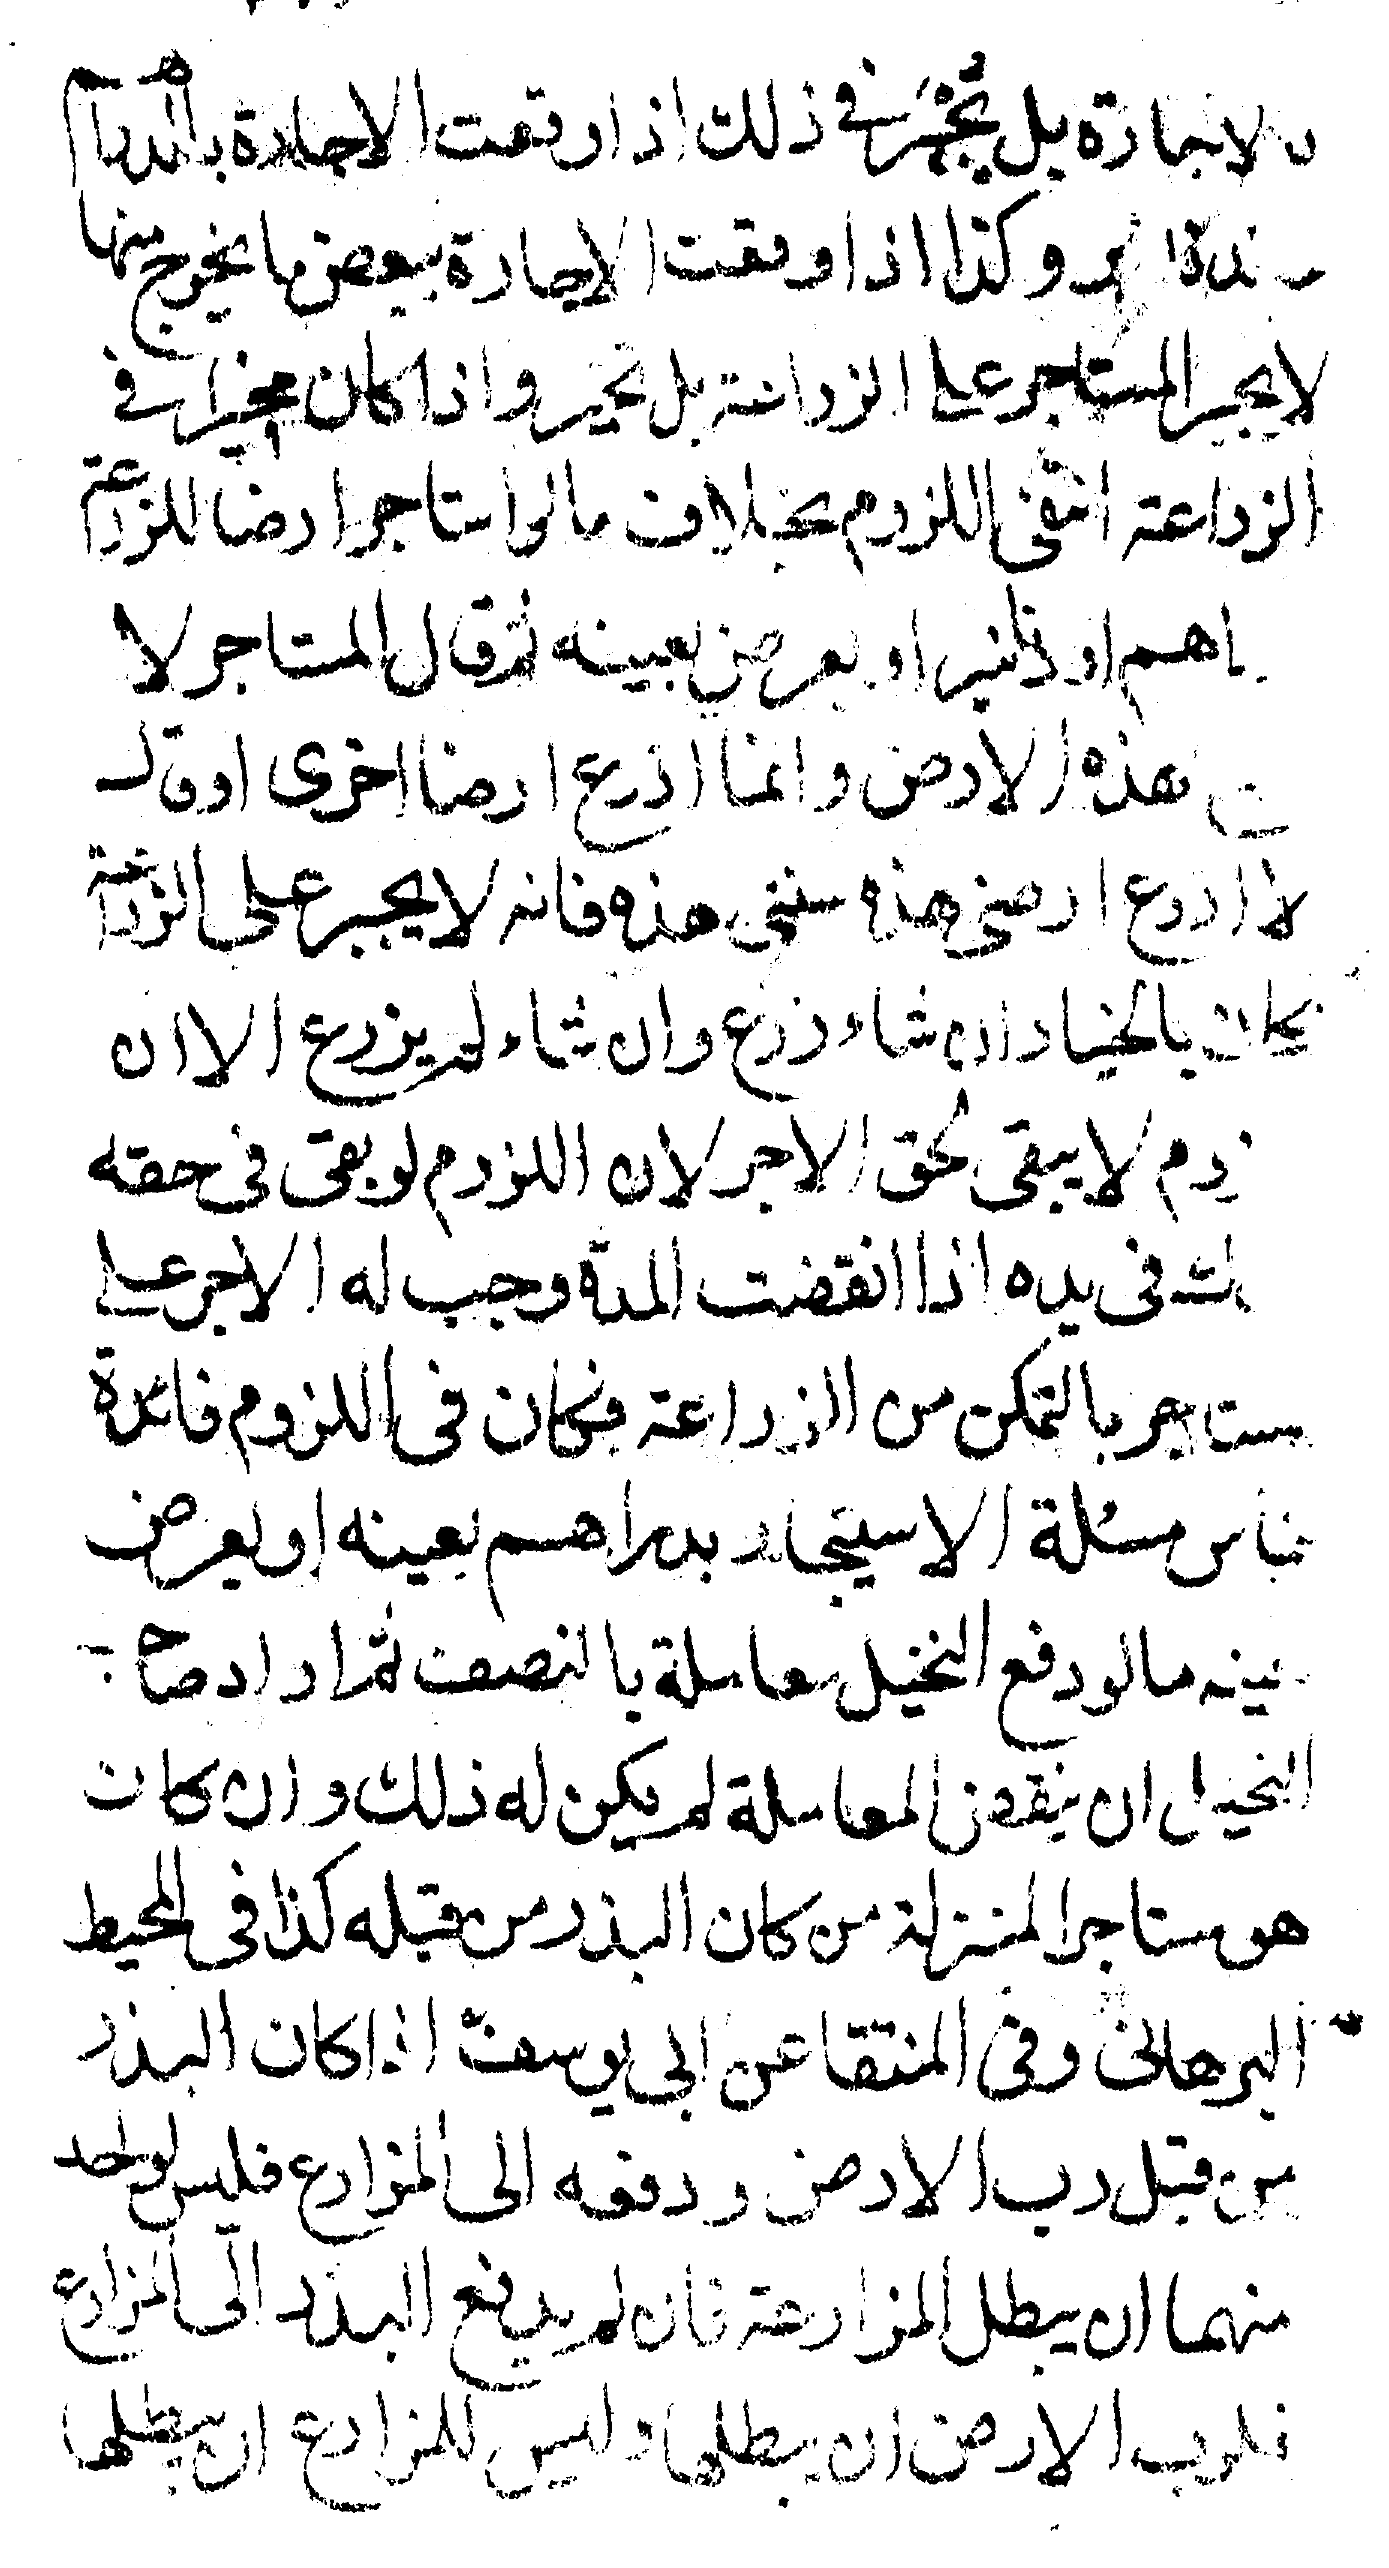 الاجارة بل يخير في ذلك اذا وقعت الاجارة بالدراهم
وكذا اذا وقعت الاجارة ببعض ما يخرج منها
لا يجبر المستاجر على الزراعة بل يخير واذا كان مخيرا في
الزراعة انتفى اللزوم بخلاف ما لو استاجر ارضا للزراعة
اودنانير او بعرض بعينه ثم قال المستاجر لا
هذه الارض وانما ازرع ارضا اخرى او قال
لا ازرع ارضى هذه سنتى هذه فانه لا يجبر على الزراعة
بالخيار ان شاء زرع وان شاء لم يزرع الا ان
لا يبقى لحق الاجر لان اللزوم لو بقى فى حقه
فى يده اذا انقضت المدة وجب له الاجر على
بالتمكن من الزراعة فكان فى اللزوم فائدة
مسئلة الاستيجار بدراهم بعينه او بعرض
ما لو دفع النخيل معاملة بالنصف ثم اراد صاحب
النخيل ان ينقض المعاملة لم يكن له ذلك وان كان
هو مستاجرا لمنزلة من كان البذر من قبله كذا فى المحيط
البرهانى وفى المنتقا عن ابى يوسف اذا كان البذر
من قبل رب الارض ودفعه الى المزارع فليس لواحد
منهما ان يبطل المزارعة فان لم يدفع البذر الى المزارع
فلرب الارض ان يبطلها وليس للمزارع ان يبطلها